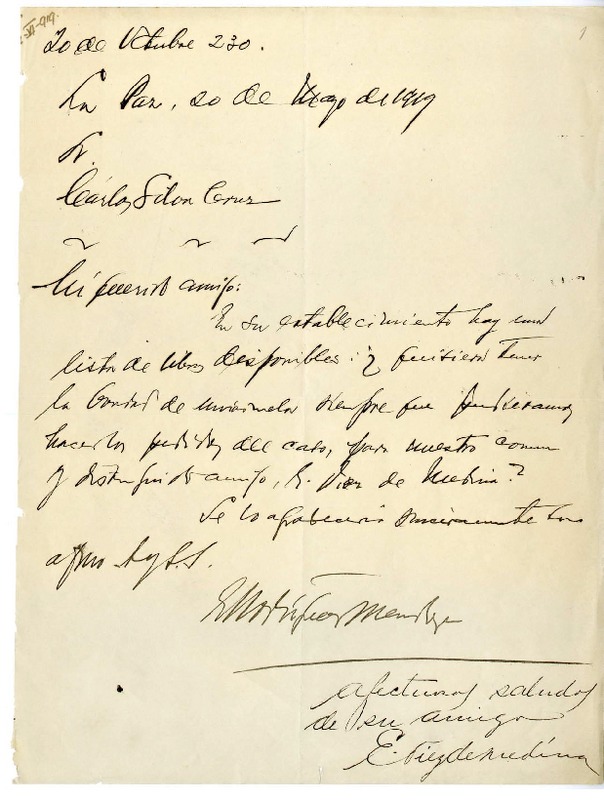 VI-919.
1
20 de Octubre 230.
La Paz, 20 de Mayo de 1919
Sr.
Cárlos Silva Cruz
Mi querido amigo:
En su establecimiento hay una
lista de libros disponibles: ¿quisiera tener
la bondad de enviármela siempre que pudieramos
hacerlos pedidos del caso, para nuestro comun
y distinguido amigo, E. Diez de Medina?
Se lo agradeceria sinceramente su
afmo. A. y S. S.
E Rodríguez Mendoza
afectuosos saludos
de su amigo
E. Diez de Medina